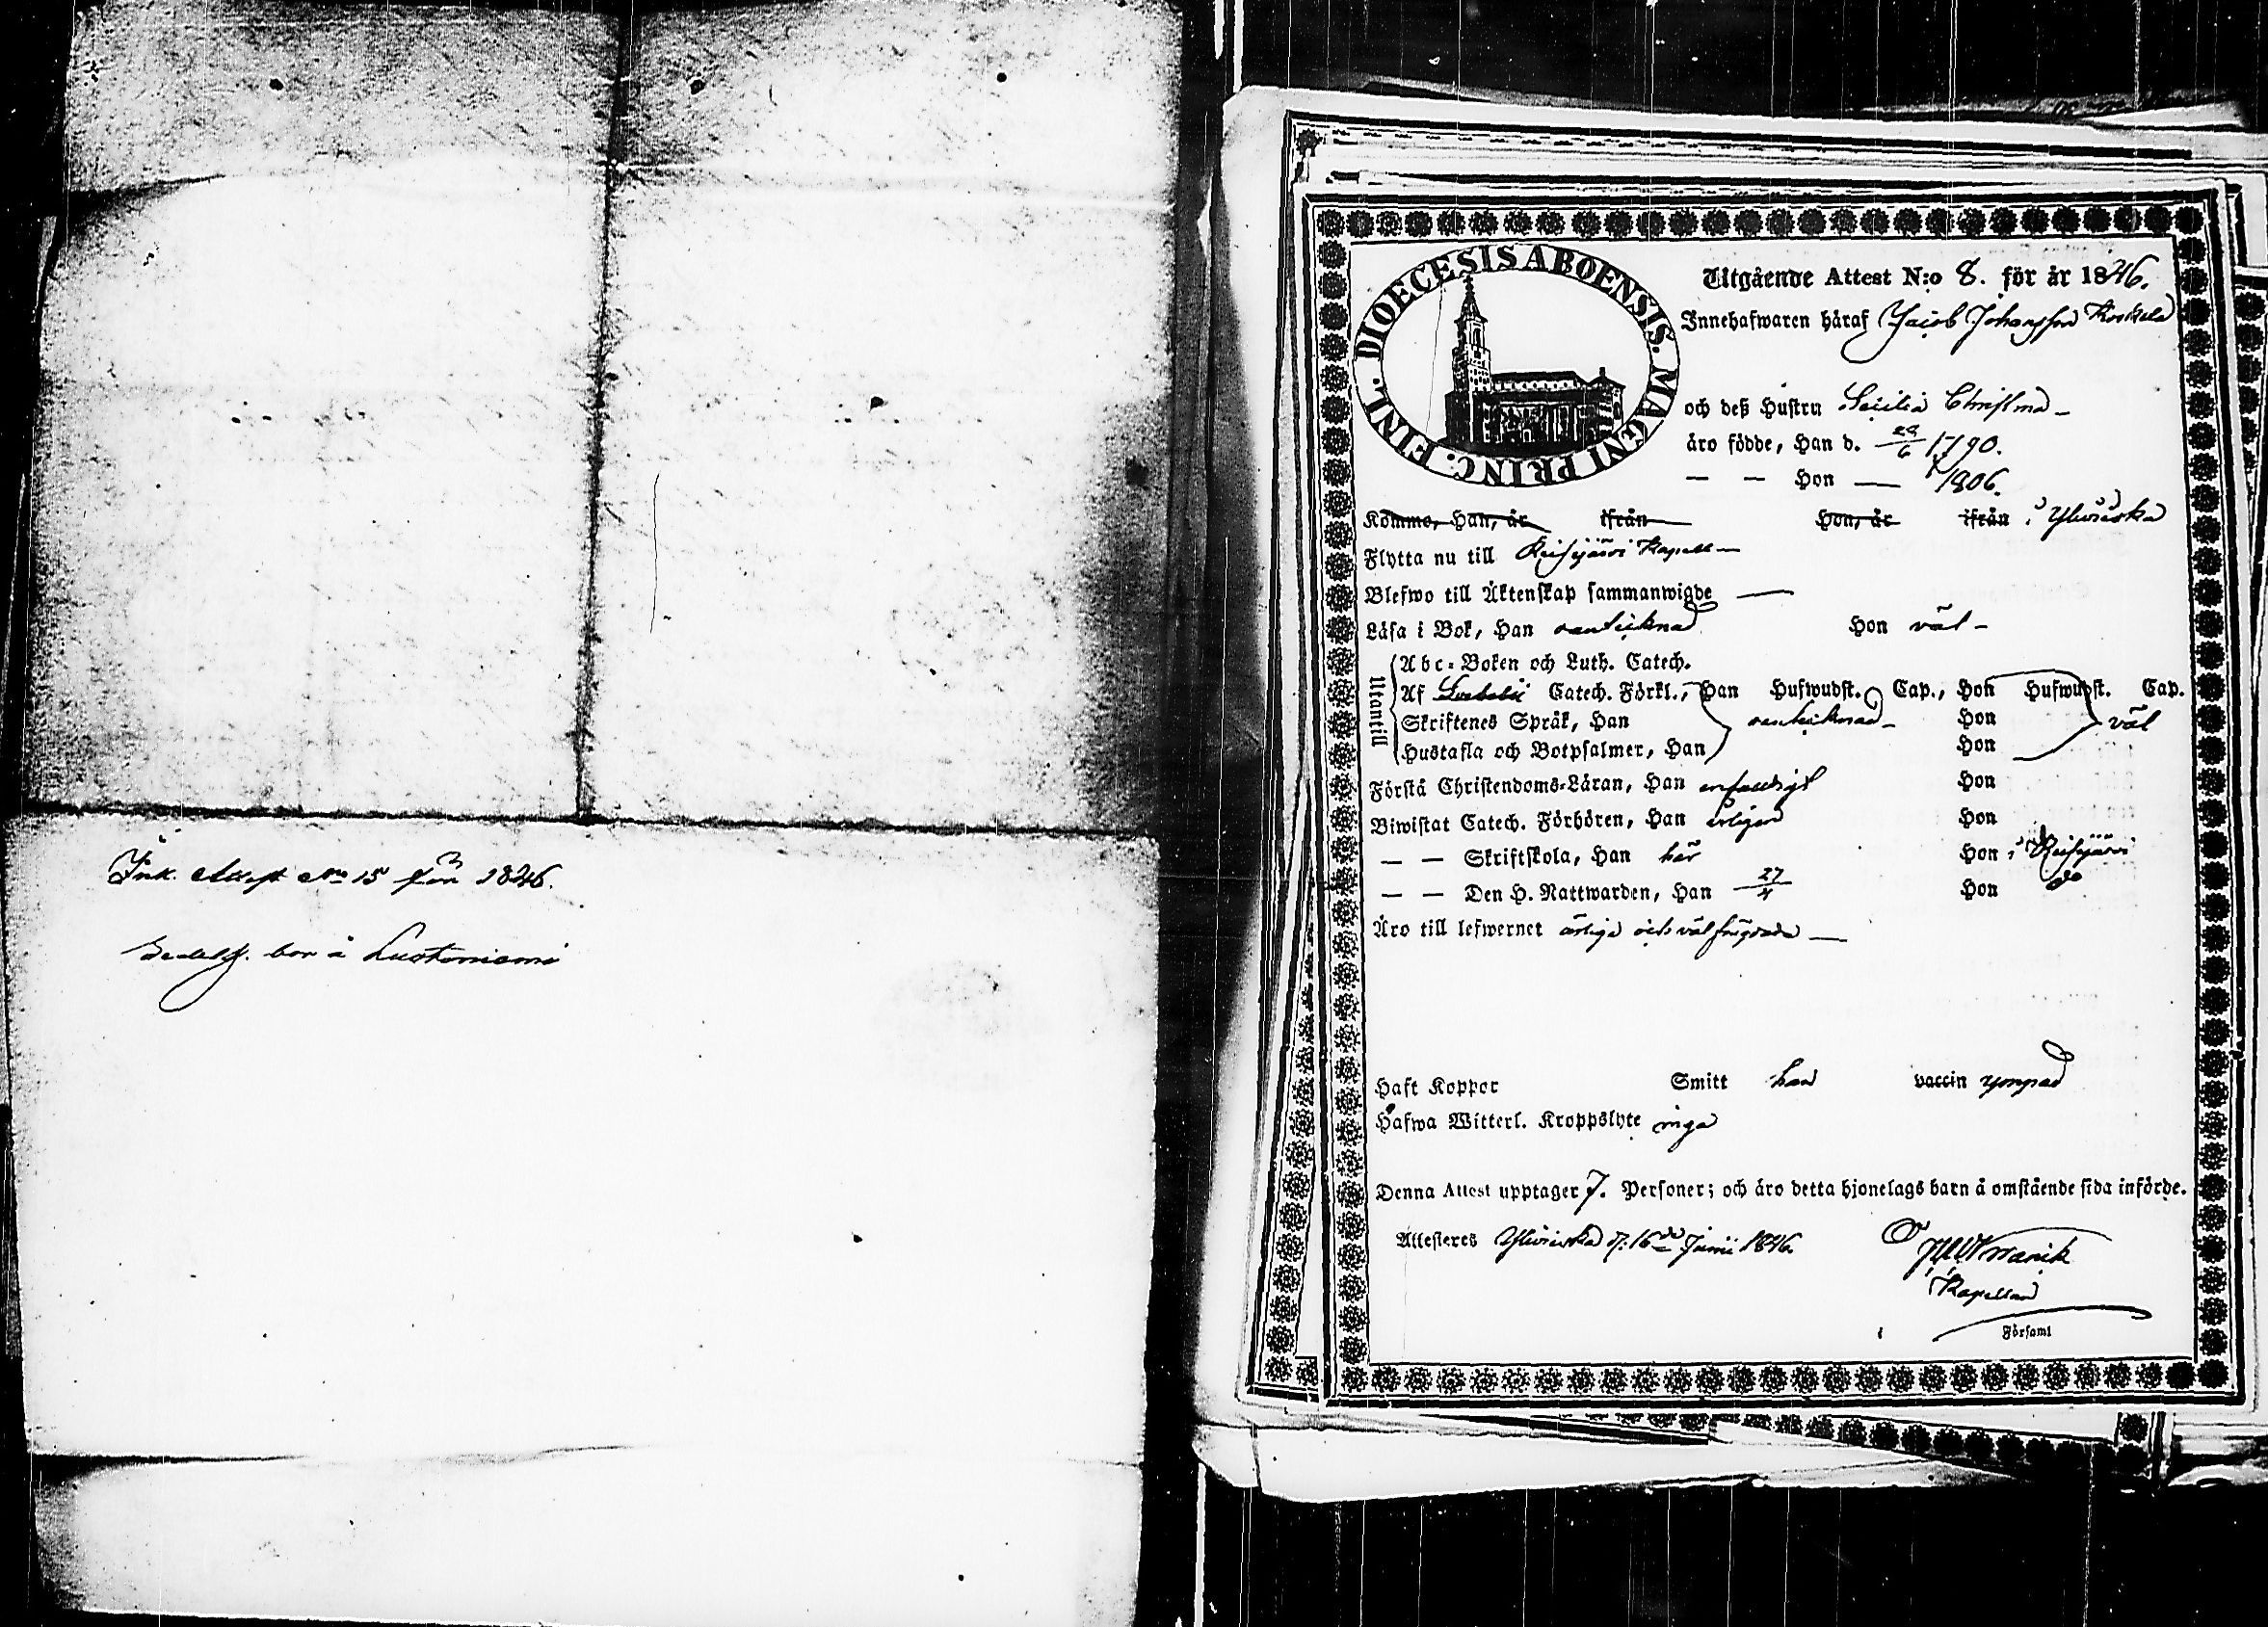 Ink. Attest No 15 för 1846.
bor å Luotoniemi
DIOECESIS ABOENSIS. MAGNI PRINC. FINL.
Utgående Attest N:o 8. för år 1846.
Innehafwaren häraf Jacob Johansson Koskela
och deß Hustru Cecilia Christina
äro födde, Han d. 29/6 1790.
— — Hon — 1806.
Kommo, Han, år ifrån Hon, år ifrån i Ylivieska
Flytta nu till Reisjärvi Kapell —
Blefwo till Äktenskap sammanwigde —
Läsa i Bok, Han antecknad Hon väl -
Utantill
Abc-Boken och Luth. Catech.
Af Catech. Förkl., Han Hufwudst. Cap., Hon Hufwudst. Cap.
Skriftenes Språk, Han antecknad - Hon väl
Hustafla och Botpsalmer, Han Hon
Förstå Christendoms-Läran, Han enfaldigt Hon
Biwistat Catech. Förhören, Han årligen Hon
— — Skriftskola, Han här Hon i Reisjärvi
— — Den H. Nattwarden, Han 27/4 Hon do
Äro till lefwernet ärliga och välfrejdade —
Haft Koppor Smitt han vaccin ympad
Hafwa Witterl. Kroppslyte inga
Denna Attest upptager 7. Personer; och äro detta hjonelags barn å omstående sida införde.
Attesteres Ylivieska d. 16de Junii 1846.
Kapellan
Församl